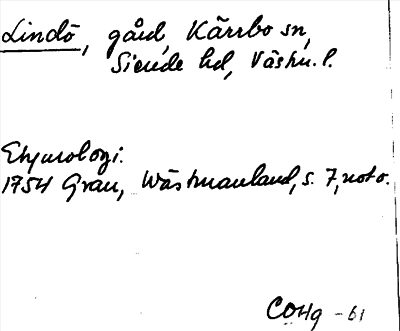 Lindö, gård, Kärrbo sn,
Siende hd, Västm. l.
Etymologi.
1754 Grau, Wästmanland, s. 7, not o.
COHg -61